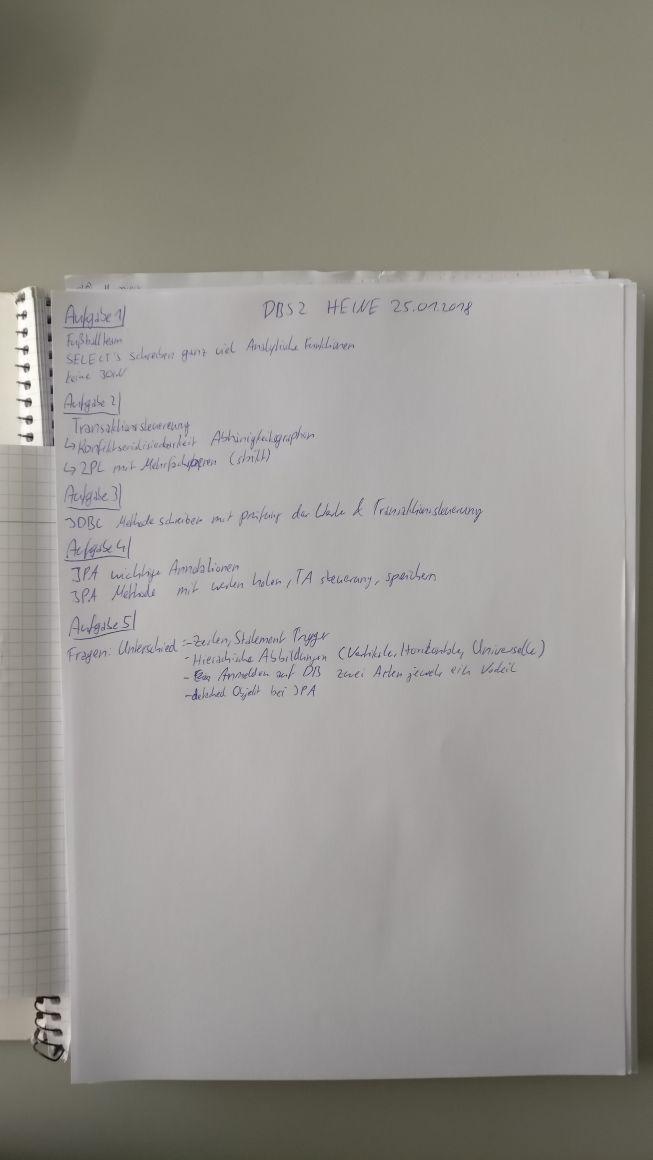 DBS2 HEINE 25.01.2018
Aufgabe 1)
Fußballteam
SELECT's schreiben ganz viel Analytische Funktionen
keine JOIN
Aufgabe 2)
Transaktionssteuerung
↳ Konfliktserialisierbarkeit Abhänigkeitsgraphen
↳ 2PL mit Mehrfachsperren (strikt)
Aufgabe 3)
JDBC Methode schreiben mit prüfung der Werte & Transaktionssteuerung
Aufgabe 4)
JPA wichtige Annotationen
JPA Methode mit werten holen, TA steuerung, speichern
Aufgabe 5)
Fragen: Unterschied :- Zeilen, Statement Trigger
- Hierachische Abbildungen (Vertikale, Horizontale, Universelle)
- Anmelden auf DB zwei Arten jeweils ein Vorteil
- detached Objekt bei JPA